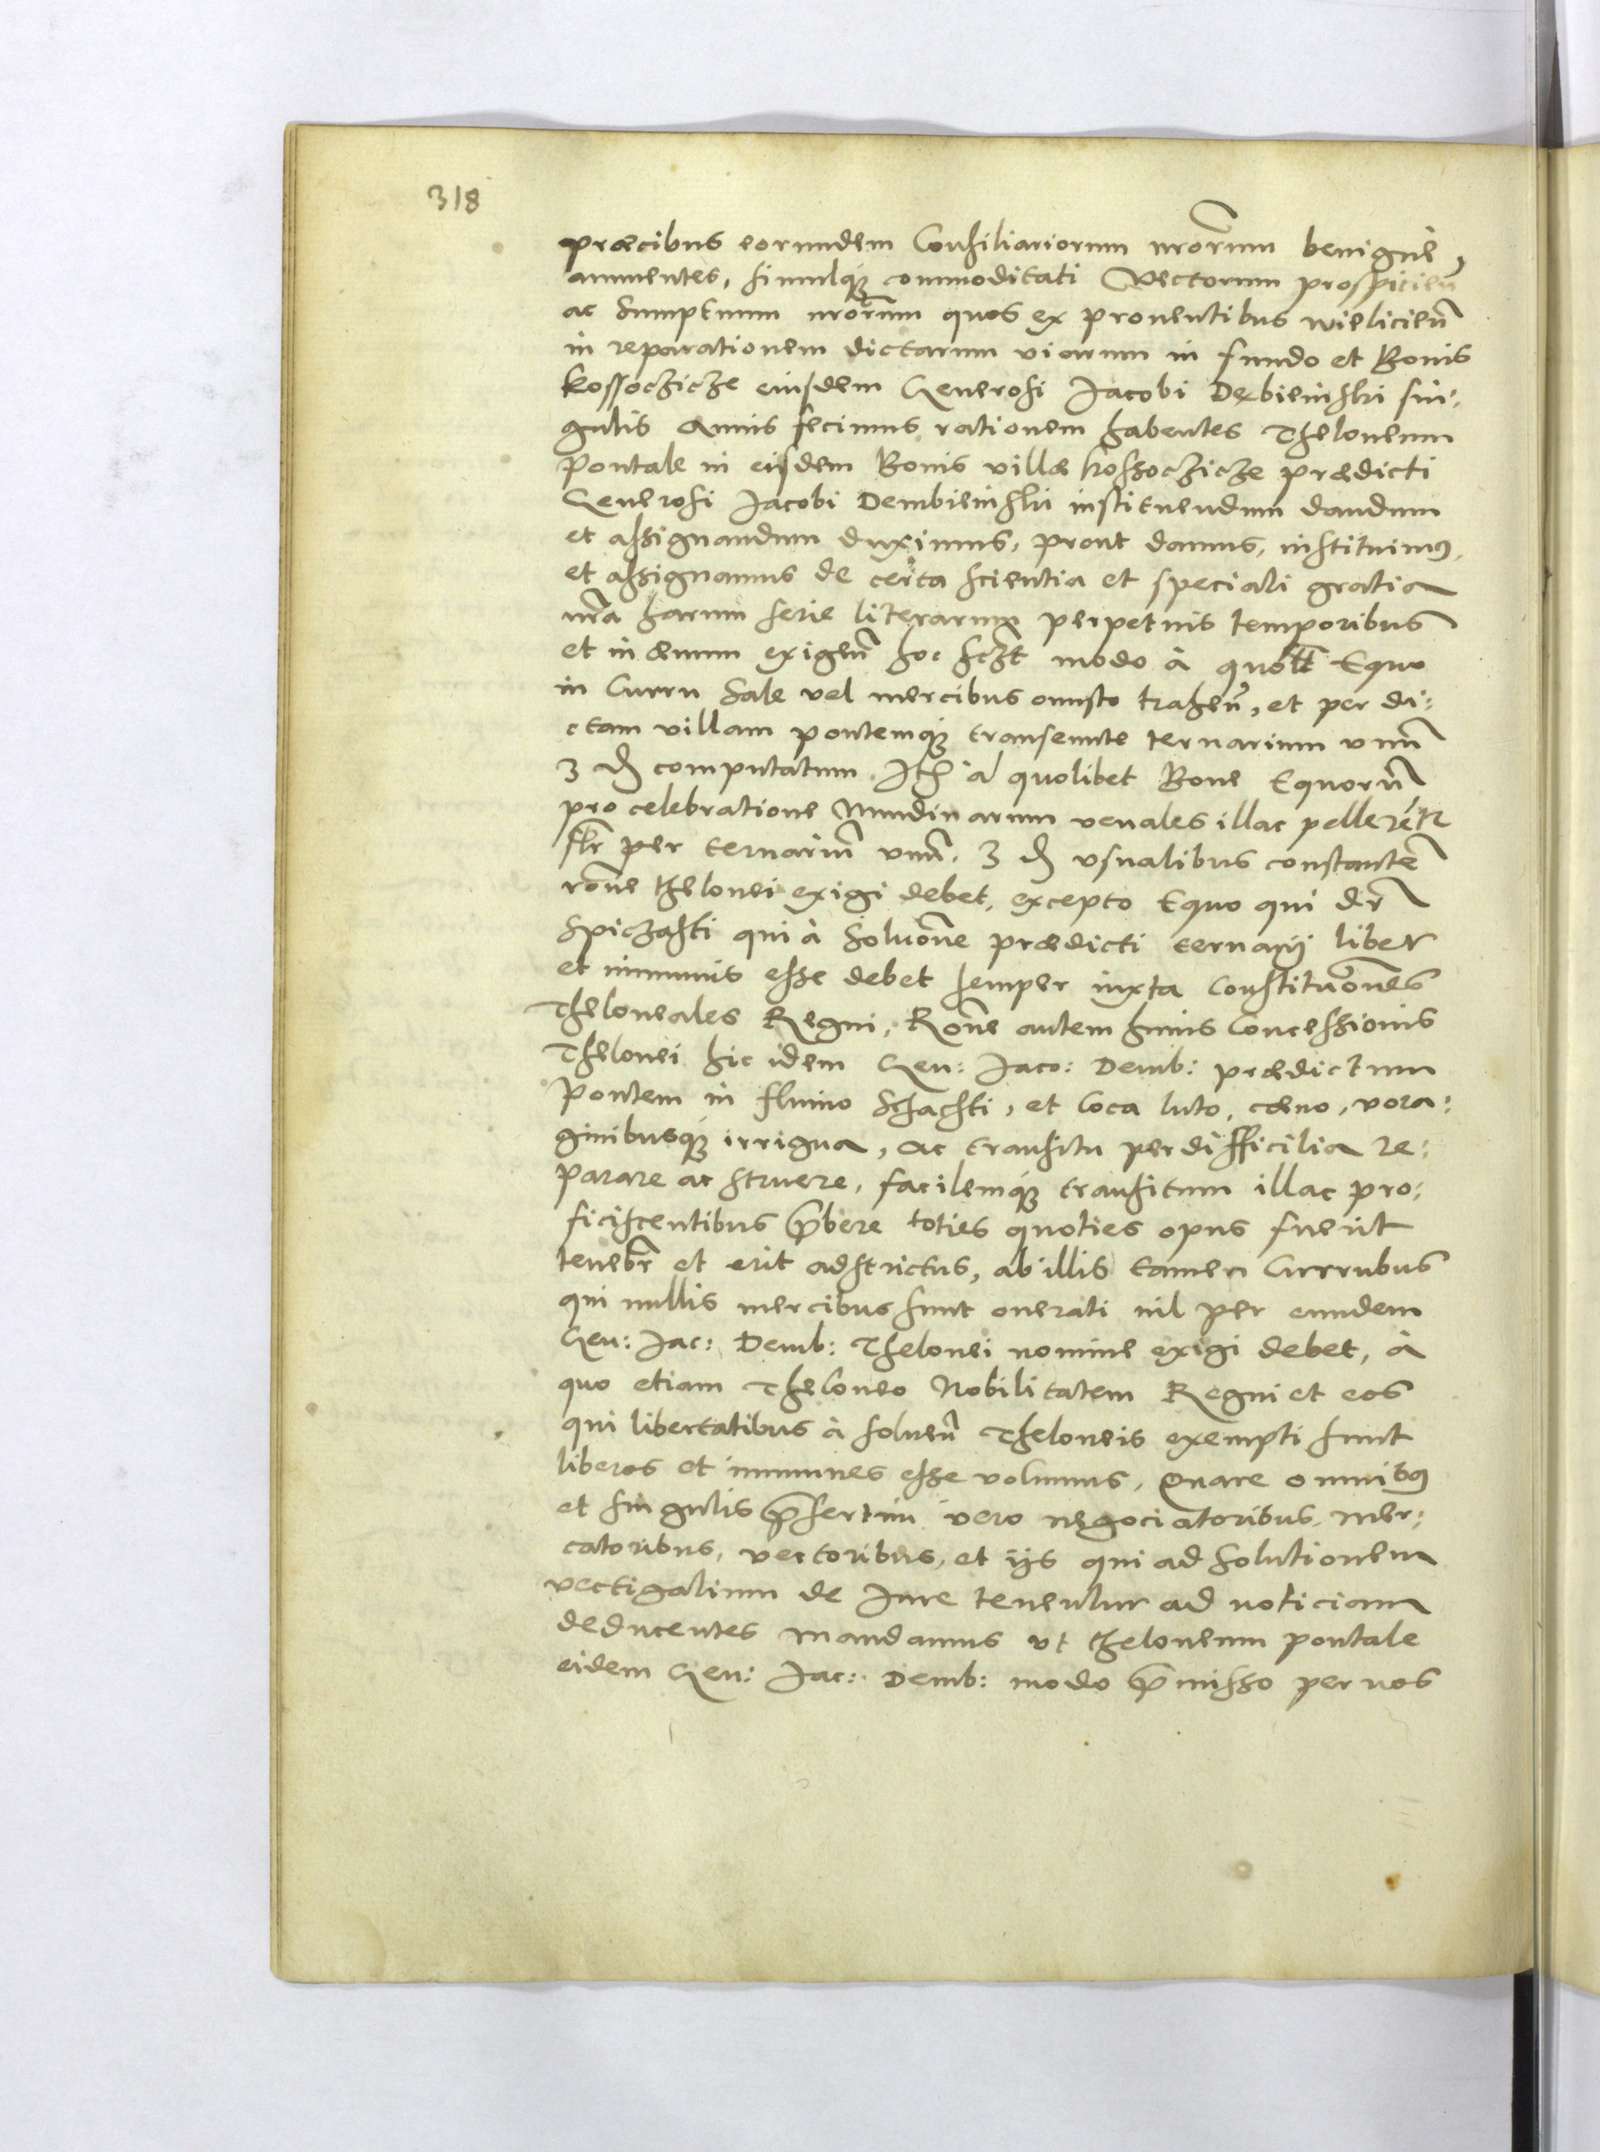 318
præcibus eorundem Consiliariorum nrorum benigne,
annuentes, simulque commoditati Vectorum prospicien
ac Sumptuum nrorum quos ex prouentibus wielicien
in reparationem dictarum viarum in fundo et Bonis
kossoczicze eiusdem Generosi Jacobi Debienski sin:
gulis Annis fecimus rationem habentes Theloneum
pontale in eisdem Bonis villæ kossoczicze prædicti
Generosi Jacobi Dembienski instituendum dandum
et assignandum duximus, prout damus, instituimus
et assignamus de certa scientia et speciali gratia
nra harum serie literarum perpetuis temporibus
et in æuum exigen hoc sczt modo à quolt Equo
in Curru Sale vel mercibus onusto trahen, et per di:
ctam villam pontemque transeunte ternarium vnu
3 d computatum. Ith a quolibet Boue Equoru
pro celebratione Nundinarum venales illac pellerentr
slr per ternariu vnu. 3 d vsualibus constante
rone thelonei exigi debet, excepto Equo qui dr
Spiczasti qui à Soluone prædicti ternarij liber
et immunis esse debet semper iuxta Constitutiones
Theloneales Regni, Rone autem huius Concessionis
Thelonei hic idem Gen: Jaco: Demb: prædictum
pontem in fluuio Schachti, et loca luto, cæno, vora:
ginibusque irrigua, ac transitu perdifficilia re:
parare ac struere, facilemque transitum illac pro:
ficiscentibus pbere toties quoties opus fuerit
tenebr et erit adstrictus, ab illis tamen Curribus
qui nullis mercibus sunt onerati nil per eundem
Gen: Jac: Demb: Thelonei nomine exigi debet, à
quo etiam Theloneo Nobilitatem Regni et eos
qui libertatibus à soluen Theloneis exempti sunt
liberos et immunes esse volumus, Quare omnibus
et singulis psertim vero negociatoribus, mer:
catoribus, vectoribus, et ijs qui ad solutionem
vectigalium de Jure tenentur ad noticiam
deducentes mandamus vt theloneum pontale
eidem Gen: Jac: Demb: modo pmisso per nos